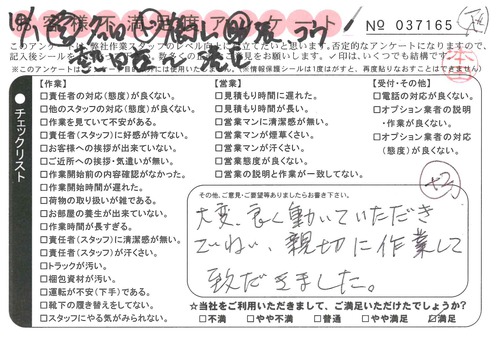 お客様不満足度アンケート
No 037165
このアンケートは、弊社作業スタッフのレベル向上に役立てたいと思います。否定的なアンケートになりますので、
記入後シールを
見をお願いします。✓印は、いくつでも結構です。
(※情報保護シールは1度はがすと、再度貼りなおすことはできません)
チェックリスト
【作業】
□責任者(対応)(態度)が良くない。
□他のスタッフの対応(態度)が良くない。
□作業を見ていて不安がある。
□責任者(スタッフ)に好感が持てない。
□お客様への挨拶が出来ていない。
□ご近所への挨拶・気遣いが無い。
□作業開始前の内容確認がなかった。
□作業開始時間が遅れた。
□荷物の取り扱いが雑である。
□お部屋の養生が出来ていない。
□作業時間が長すぎる。
□責任者(スタッフ)に清潔感が無い。
□責任者(スタッフ)が汗くさい。
□トラックが汚い。
□梱包資材が汚い。
□運転が不安(下手)である。
□靴下の履き替えをしてない。
□スタッフにやる気がみられない。
【営業】
□見積もり時間に遅れた。
□見積もり時間が長い。
□営業マンに清潔感が無い。
□営業マンが煙草くさい。
□営業マンが汗くさい。
□営業態度が良くない。
□営業の説明と作業が一致してない。
【受付・その他】
□電話の対応が良くない。
□オプション業者の説明
・作業が良くない。
□オプション業者の対応
(態度)が良くない。
その他、ご意見・ご要望等ありましたらお書き下さい。
大変、良く働いていただき
ていねい、親切に作業して
致だきました。
☆当社をご利用いただきまして、ご満足いただけたでしょうか?
□不満 □やや不満 □普通 □やや満足 ☑満足